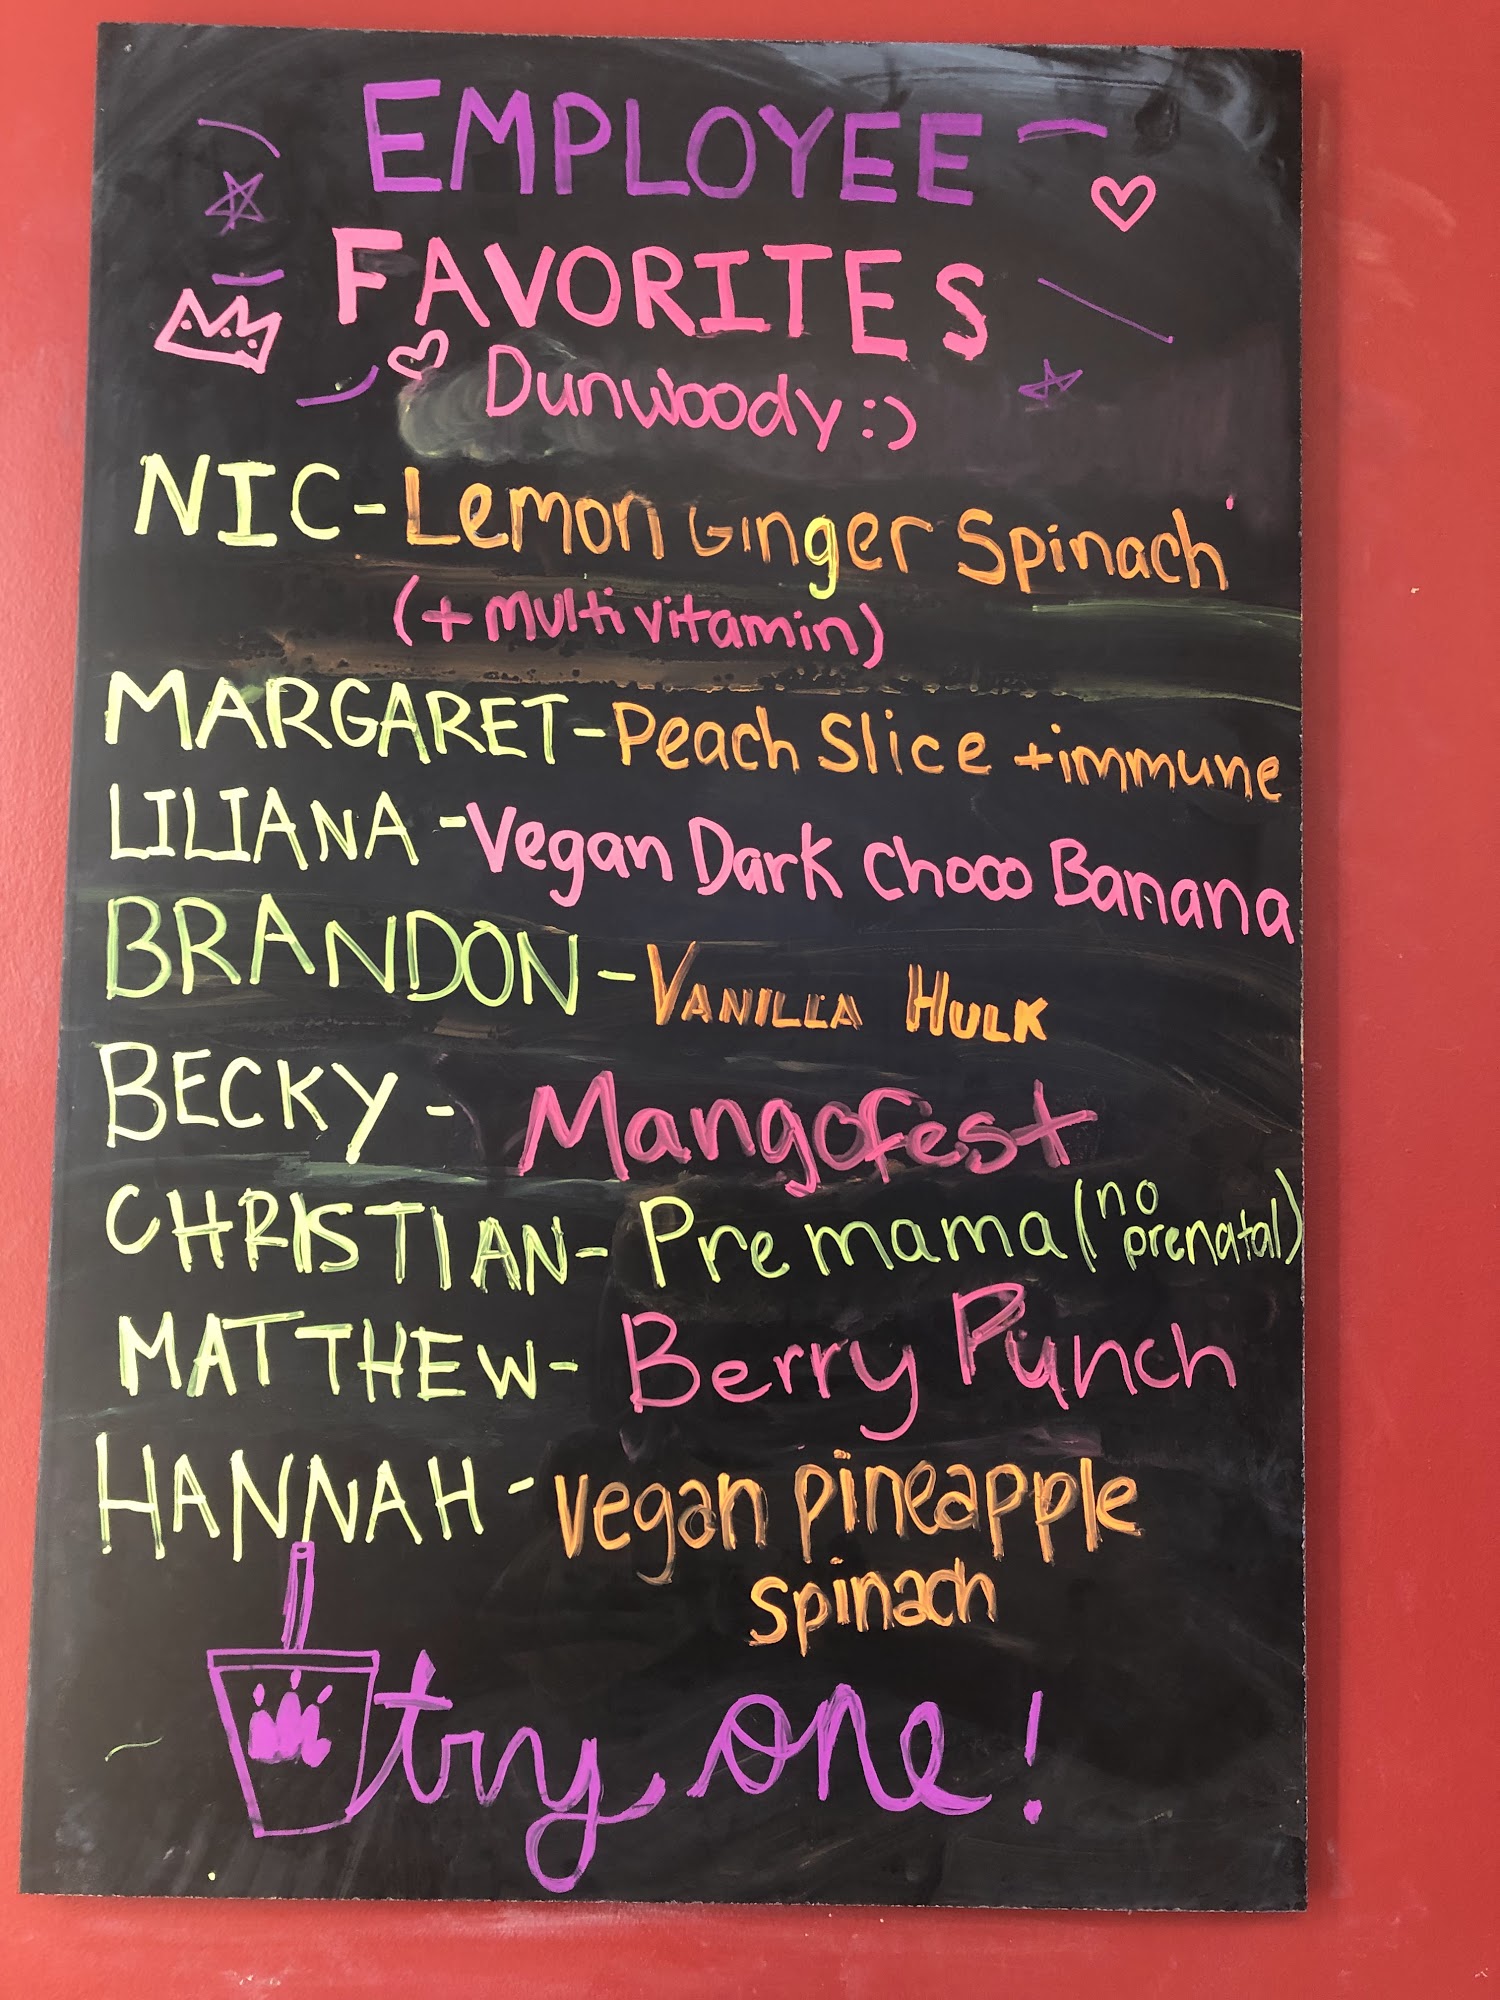 EMPLOYEE
FAVORITES
Dunwoody :)
NIC - Lemon Ginger Spinach
(+ multivitamin)
MARGARET - Peach Slice + immune
LILIANA - Vegan Dark Choco Banana
BRANDON - VANILLA HULK
BECKY - Mangofest
CHRISTIAN - Premama (no prenatal)
MATTHEW - Berry Punch
HANNAH - vegan pineapple
spinach
try one!